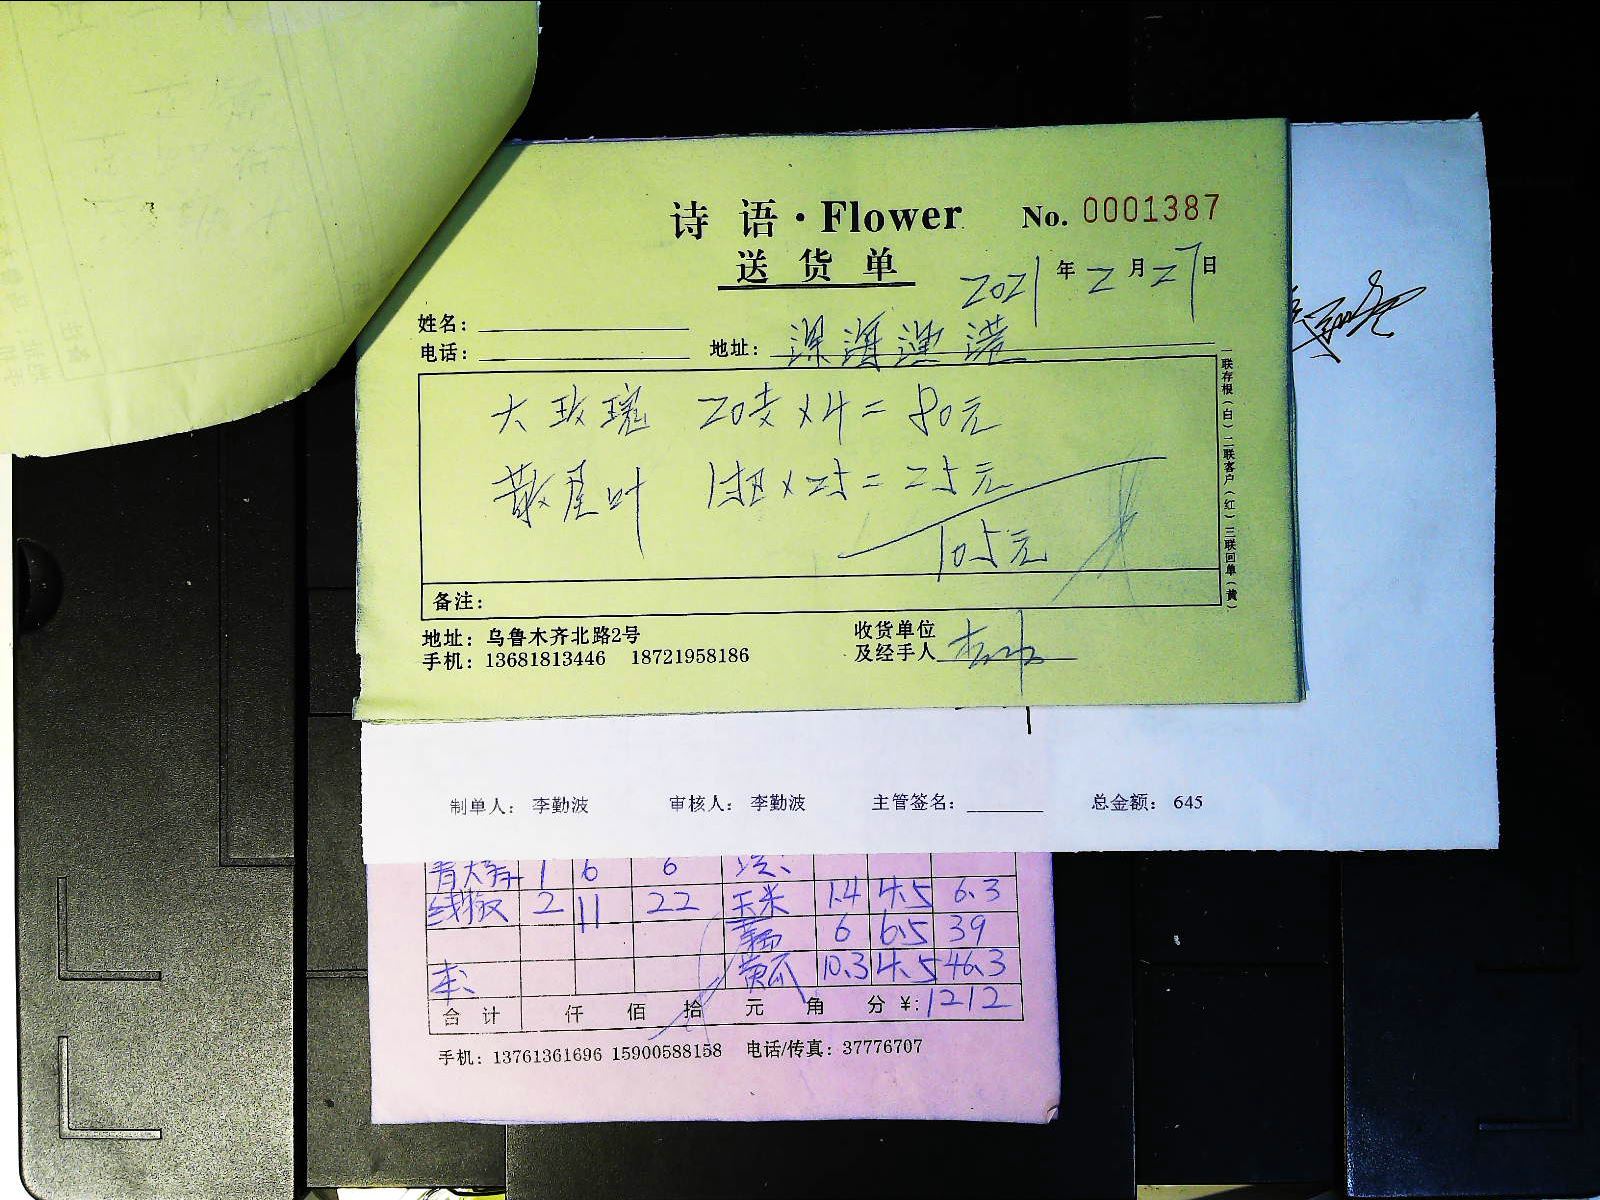 诗语·Flower No. 0001387
送货单
2021年2月27日
姓名：
电话： 地址：深海蓮港
大玫瑰 20支×4=80元
散尾叶 1把×25=25元
105元
备注：
一联存根（白）二联客户（红）三联回单（黄）
地址：乌鲁木齐北路2号
手机：13681813446 18721958186
收货单位
及经手人
制单人：李勤波 审核人：李勤波 主管签名： 总金额：645
1 6 6
线椒 2 11 22 玉米 1.4 4.5 6.3
6 6.5 39
黄瓜 10.3 4.5 46.3
合计 仟 佰 拾 元 角 分 ¥:1212
手机：13761361696 15900588158 电话/传真：37776707